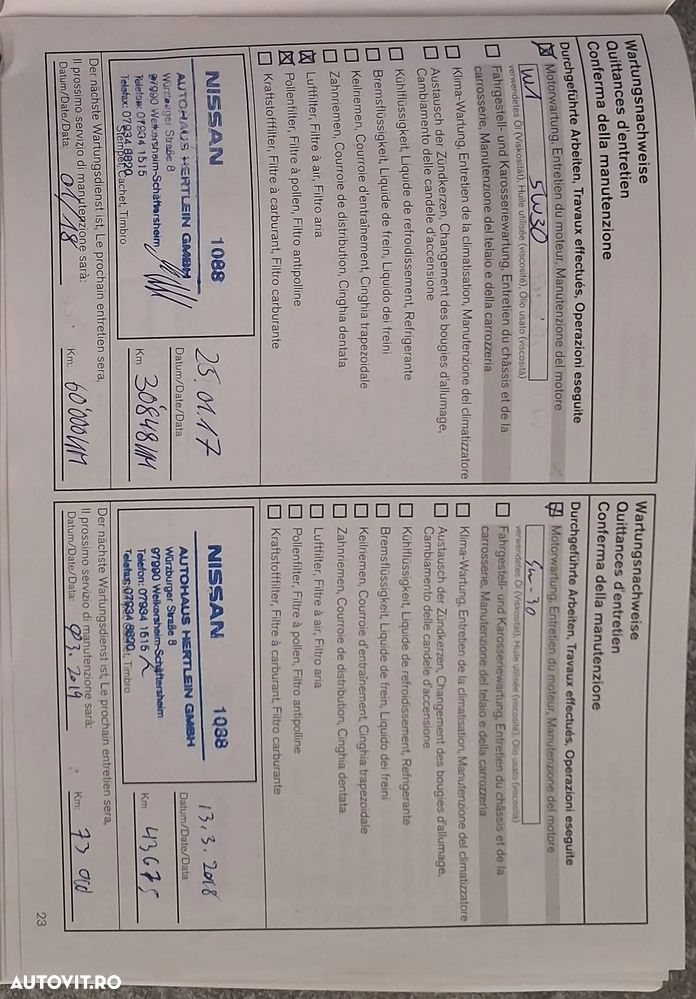 Wartungsnachweise
Quittances d'entretien
Conferma della manutenzione
Durchgeführte Arbeiten, Travaux effectués, Operazioni eseguite
Motorwartung, Entretien du moteur, Manutenzione del motore
verwendetes Öl (Viskosität), Huile utilisée (viscosité), Olio usato (viscosità)
5W30
Fahrgestell- und Karosseriewartung, Entretien du châssis et de la
carrosserie, Manutenzione del telaio e della carrozzeria
Klima-Wartung, Entretien de la climatisation, Manutenzione del climatizzatore
Austausch der Zündkerzen, Changement des bougies d'allumage,
Cambiamento delle candele d'accensione
Kühlflüssigkeit, Liquide de refroidissement, Refrigerante
Bremsflüssigkeit, Liquide de frein, Liquido dei freini
Keilriemen, Courroie d'entraînement, Cinghia trapezoidale
Zahnriemen, Courroie de distribution, Cinghia dentata
Luftfilter, Filtre à air, Filtro aria
Pollenfilter, Filtre à pollen, Filtro antipolline
Kraftstofffilter, Filtre à carburant, Filtro carburante
NISSAN 1088
AUTOHAUS HERTLEIN GMBH
Würzburger Straße 8
97990 Weikersheim-Schäftersheim
Telefon: 07934 1515
Telefax: 07934 8820
Stempel, Cachet, Timbro
25.01.17
Datum/Date/Data
30'848 KM
Km
Der nächste Wartungsdienst ist, Le prochain entretien sera,
Il prossimo servizio di manutenzione sarà:
Datum/Date/Data: 01/18
Km: 60'000 KM
Wartungsnachweise
Quittances d'entretien
Conferma della manutenzione
Durchgeführte Arbeiten, Travaux effectués, Operazioni eseguite
Motorwartung, Entretien du moteur, Manutenzione del motore
verwendetes Öl (Viskosität), Huile utilisée (viscosité), Olio usato (viscosità)
5w-30
Fahrgestell- und Karosseriewartung, Entretien du châssis et de la
carrosserie, Manutenzione del telaio e della carrozzeria
Klima-Wartung, Entretien de la climatisation, Manutenzione del climatizzatore
Austausch der Zündkerzen, Changement des bougies d'allumage,
Cambiamento delle candele d'accensione
Kühlflüssigkeit, Liquide de refroidissement, Refrigerante
Bremsflüssigkeit, Liquide de frein, Liquido dei freini
Keilriemen, Courroie d'entraînement, Cinghia trapezoidale
Zahnriemen, Courroie de distribution, Cinghia dentata
Luftfilter, Filtre à air, Filtro aria
Pollenfilter, Filtre à pollen, Filtro antipolline
Kraftstofffilter, Filtre à carburant, Filtro carburante
NISSAN 1088
AUTOHAUS HERTLEIN GMBH
Würzburger Straße 8
97990 Weikersheim-Schäftersheim
Telefon: 07934 1515
Telefax: 07934 8820
Timbro
13.3.2018
Datum/Date/Data
43675
Km
Der nächste Wartungsdienst ist, Le prochain entretien sera,
Il prossimo servizio di manutenzione sarà:
Datum/Date/Data: 03.2019
Km: 73 000
23
AUTOVIT.RO